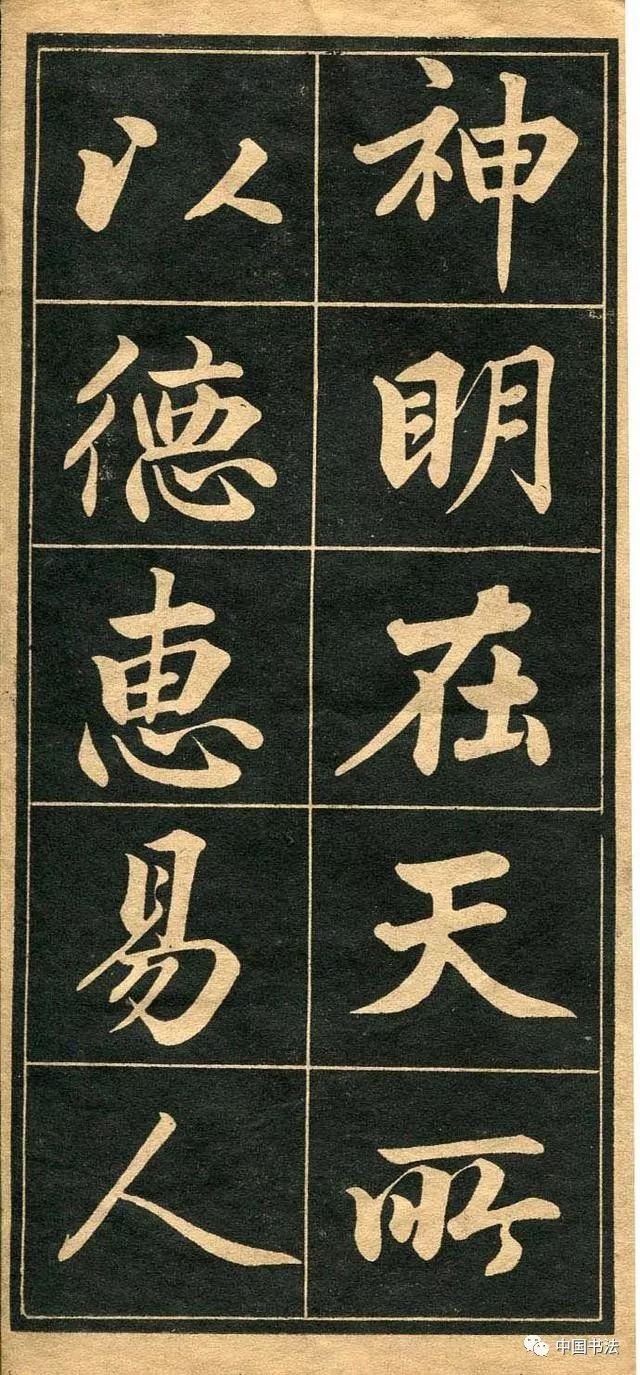 神明在天所
以德惠易人
中国书法